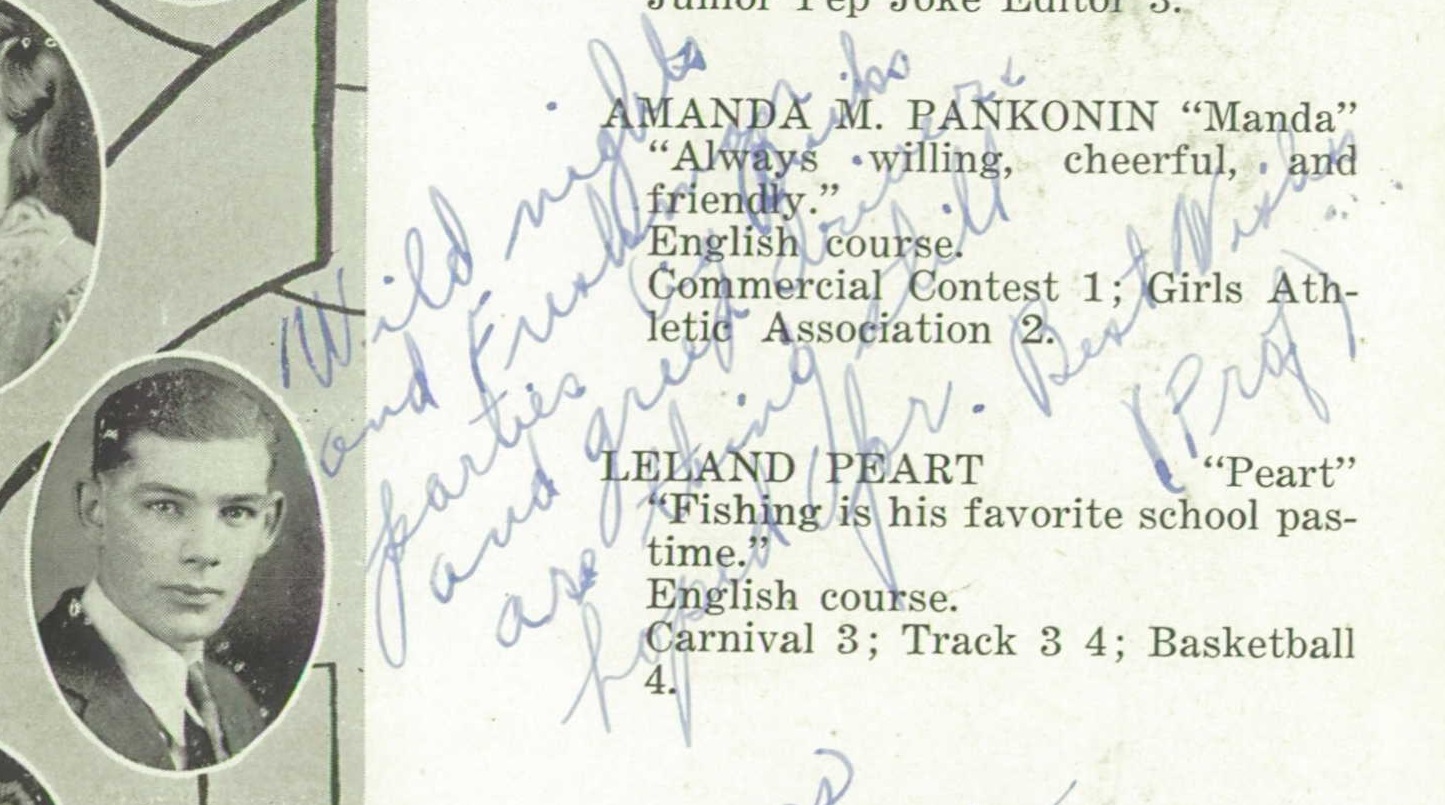 Junior Pep Joke Editor 3.
AMANDA M. PANKONIN “Manda”
“Always willing, cheerful, and
friendly.”
English course.
Commercial Contest 1; Girls Ath-
letic Association 2.
LELAND PEART “Peart”
“Fishing is his favorite school pas-
time.”
English course.
Carnival 3; Track 3 4; Basketball
4.
Wild nights
and
parties
and greef
are thing still
hoped for. Best Wishes
(Prof)